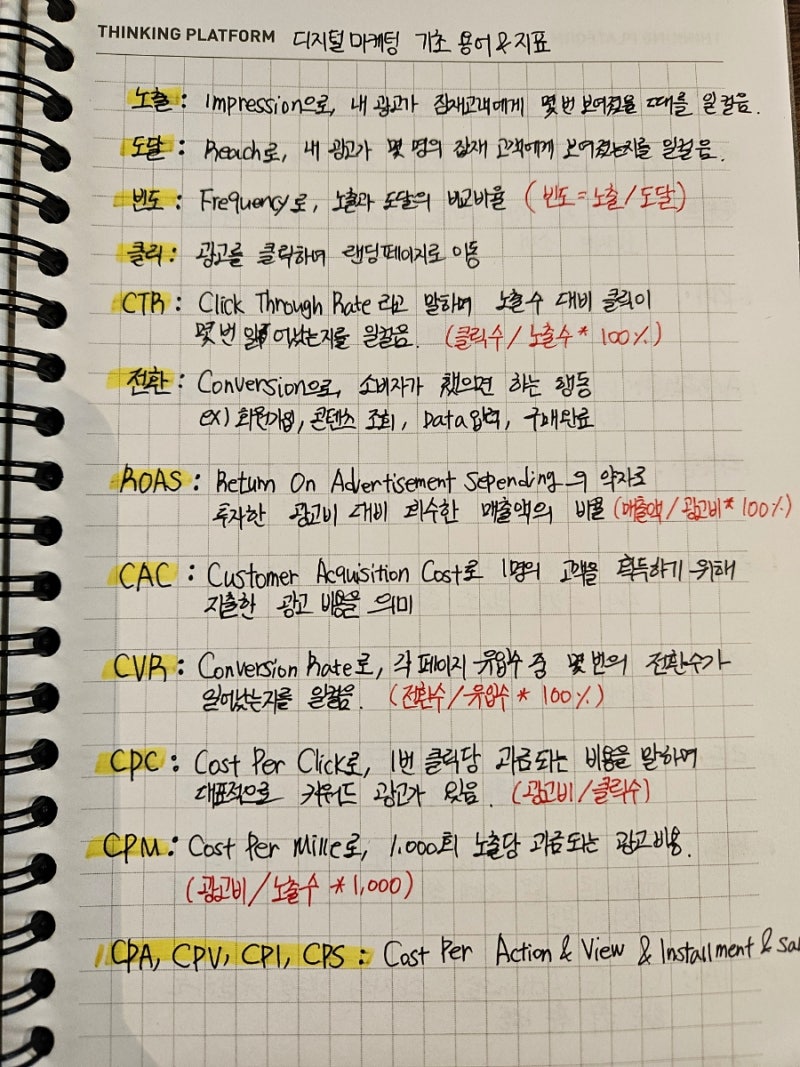 THINKING PLATFORM 디지털 마케팅 기초 용어 & 지표
노출 : Impression으로, 내 광고가 잠재고객에게 몇 번 보여졌을 때를 일컬음.
도달 : Reach로, 내 광고가 몇 명의 잠재 고객에게 보여졌는지를 일컬음.
빈도 : Frequency로, 노출과 도달의 비교비율 (빈도 = 노출/도달)
클릭 : 광고를 클릭하여 랜딩페이지로 이동
CTR : Click Through Rate 라고 말하며 노출수 대비 클릭이
몇 번 일어났는지를 일컬음. (클릭수/노출수 * 100%)
전환 : Conversion으로, 소비자가 했으면 하는 행동
ex) 회원가입, 콘텐츠 조회, Data입력, 구매완료
ROAS : Return On Advertisement Sepending 의 약자로
투자한 광고비 대비 회수한 매출액의 비율 (매출액/광고비 * 100%)
CAC : Customer Acquisition Cost로 1명의 고객을 획득하기 위해
지출한 광고 비용을 의미
CVR : Conversion Rate로, 각 페이지 유입수 중 몇 번의 전환수가
일어났는지를 일컬음. (전환수/유입수 * 100%)
CPC : Cost Per Click로, 1번 클릭당 과금되는 비용을 말하며
대표적으로 키워드 광고가 있음. (광고비/클릭수)
CPM : Cost Per Mille로, 1.000회 노출당 과금되는 광고비용.
(광고비/노출수 * 1,000)
CPA, CPV, CPI, CPS : Cost Per Action & View & Installment &